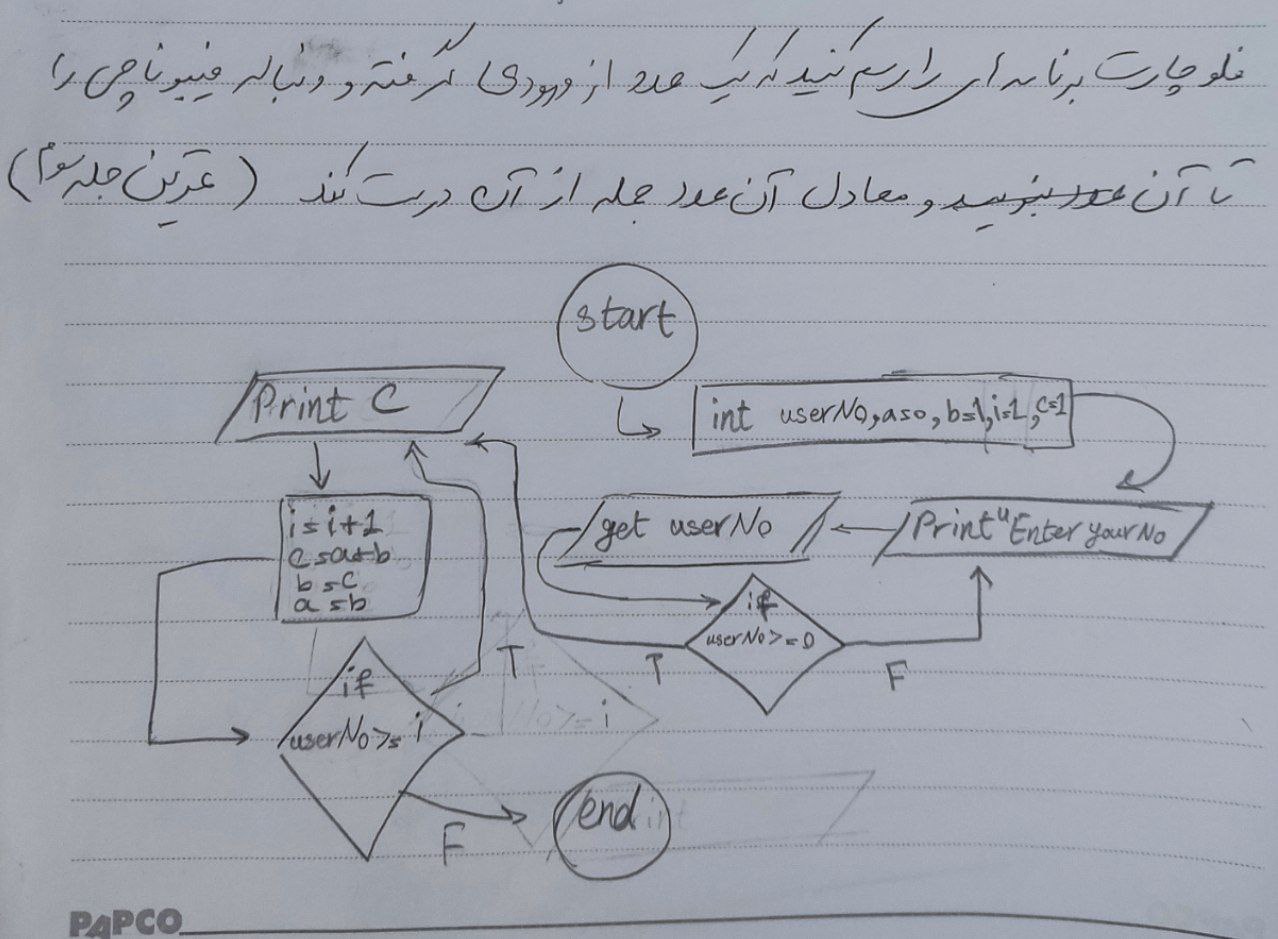 فلوچارت برنامه ای را رسم کنید که یک عدد از ورودی گرفته و دنباله فیبوناچی را
تا آن عدد بنویسید و معادل آن عدد جمله از آن درست کند (تمرین جلسه سوم)
start
int userNo, a=0, b=1, i=1, c=1
Print "Enter your No
get userNo
if
userNo>=0
T
F
Print C
i=i+1
c=a+b
b=c
a=b
if
userNo>=i
T
F
end
PAPCO